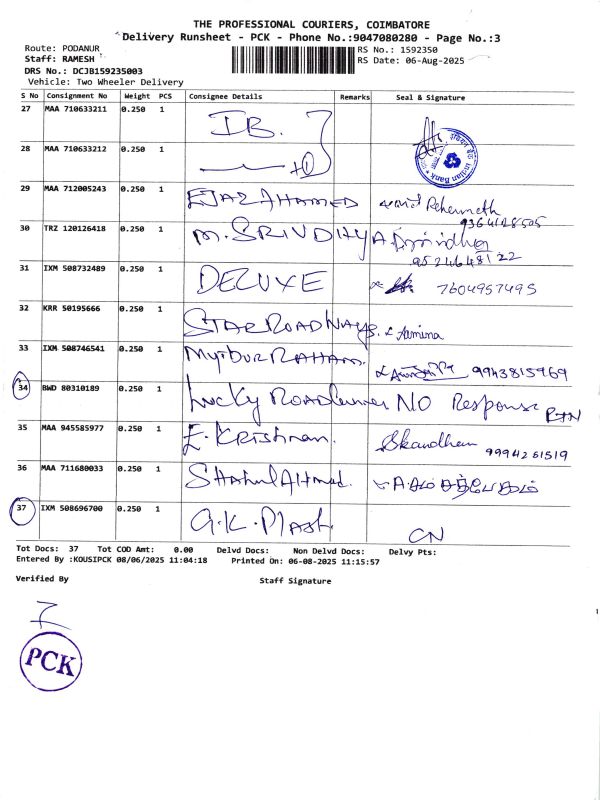 THE PROFESSIONAL COURIERS, COIMBATORE
Delivery Runsheet - PCK - Phone No.:9047080280 - Page No.:3
Route: PODANUR
RS No.: 1592350
Staff: RAMESH
RS Date: 06-Aug-2025
DRS No.: DCJB159235003
Vehicle: Two Wheeler Delivery
S No Consignment No Weight PCS Consignee Details Remarks Seal & Signature
27 MAA 710633211 0.250 1 IB.
28 MAA 710633212 0.250 1 Indian Bank
29 MAA 712005243 0.250 1 EJAZ AHAMED
9364128505
30 TRZ 120126418 0.250 1 M. SRIVIDHYA
9524648122
31 IXM 508732489 0.250 1 DELUXE 7604957495
32 KRR 50195666 0.250 1 STAR ROAD WAYS. Aamina
33 IXM 508746541 0.250 1 MUJIBUR RAHAM. 9943815969
34 BWD 80310189 0.250 1 Lucky Roadliner NO Response RTN
35 MAA 945585977 0.250 1 E. Krishnan. Skandhan
9994261519
36 MAA 711680033 0.250 1 Shahul Ahmed.
37 IXM 508696700 0.250 1 G.K. Plast. CN
Tot Docs: 37 Tot COD Amt: 0.00 Delvd Docs: Non Delvd Docs: Delvy Pts:
Entered By :KOUSIPCK 08/06/2025 11:04:18 Printed On: 06-08-2025 11:15:57
Verified By Staff Signature
PCK